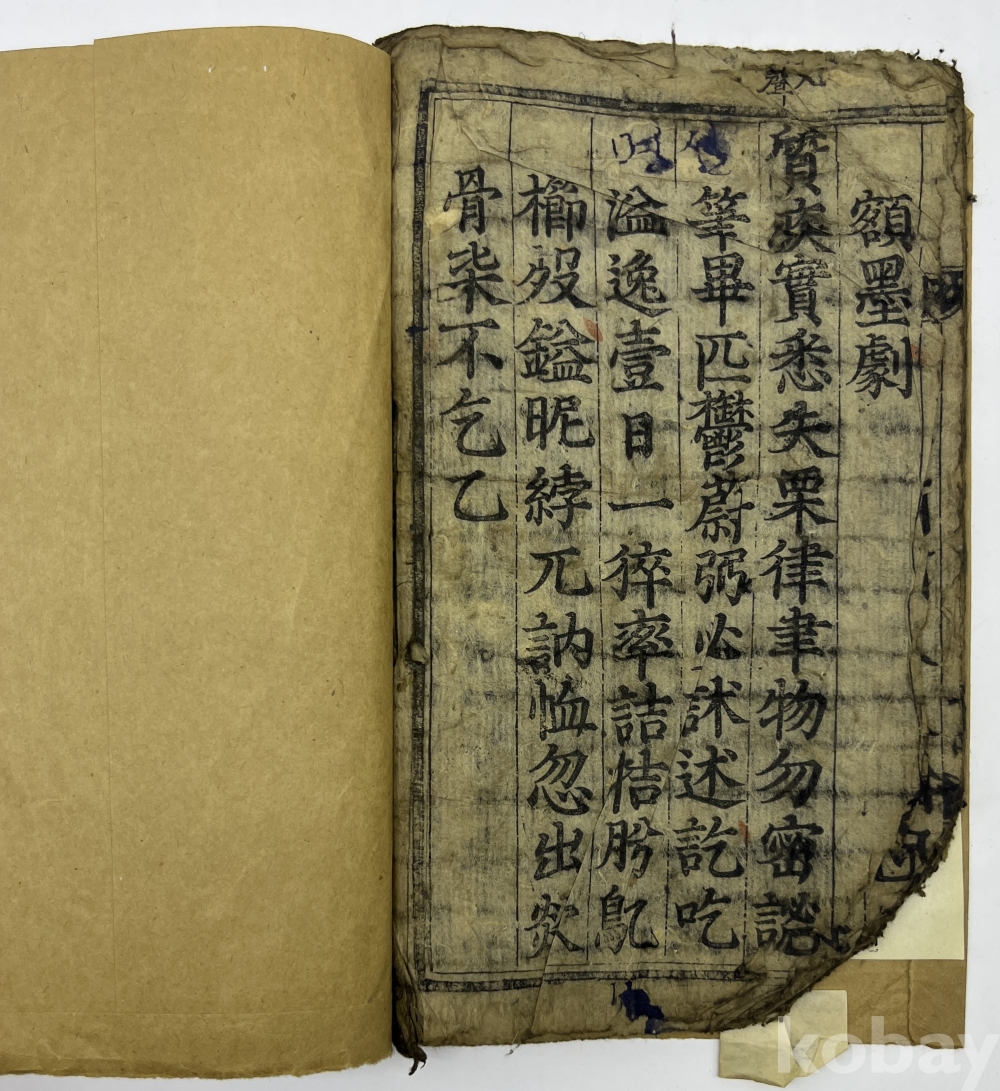 入聲
額墨劇
質疾實悉失栗律聿物勿密謐
筆畢匹鬱蔚弼必訹述訖吃
溢逸壹日一猝率詰桔肹鳦
櫛歿鎰昵綍兀訥恤忽出欻
骨柒不乞乙
kobay